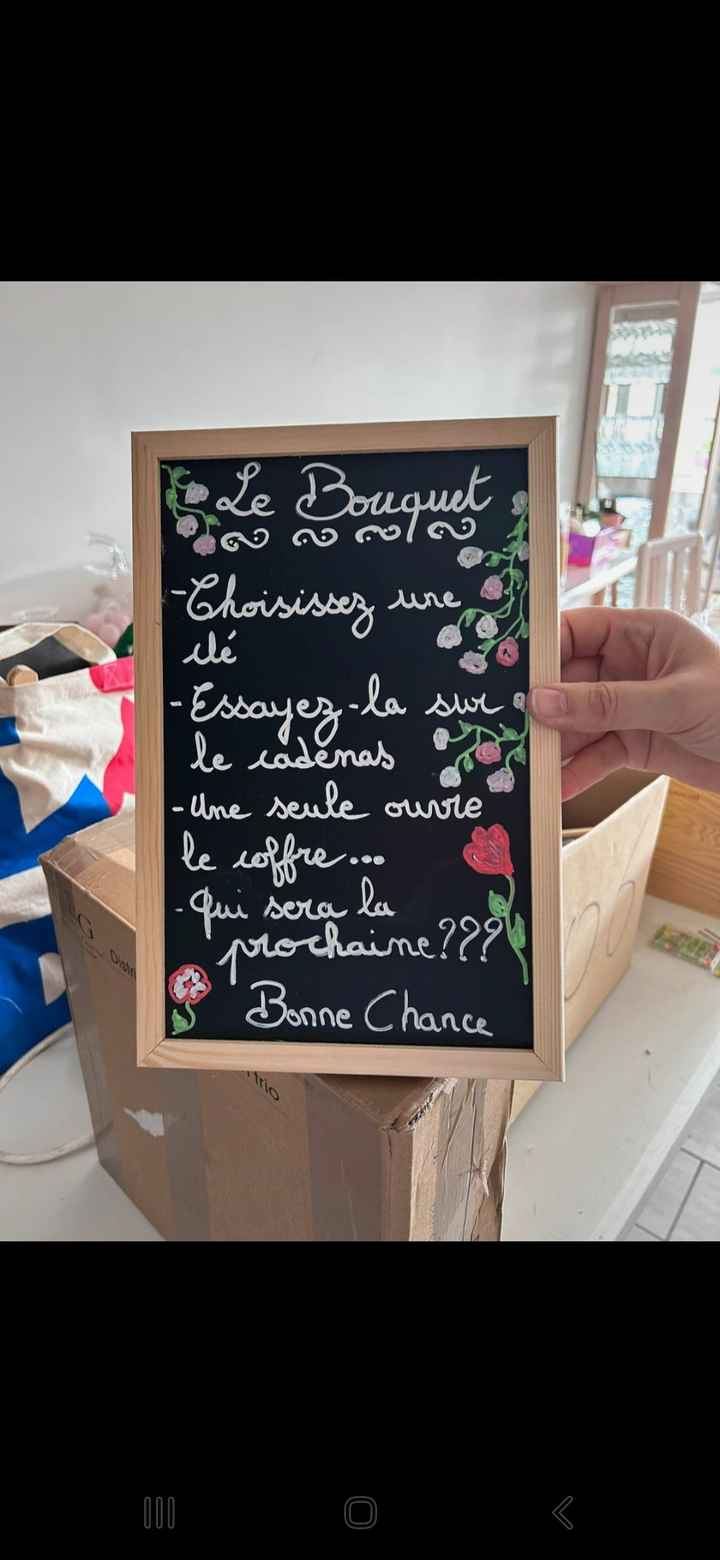 Le Bouquet
-Choisissez une
clé
-Essayez-la sur
le cadenas
-Une seule ouvre
le coffre...
-Qui sera la
prochaine???
Bonne Chance
G
Distri